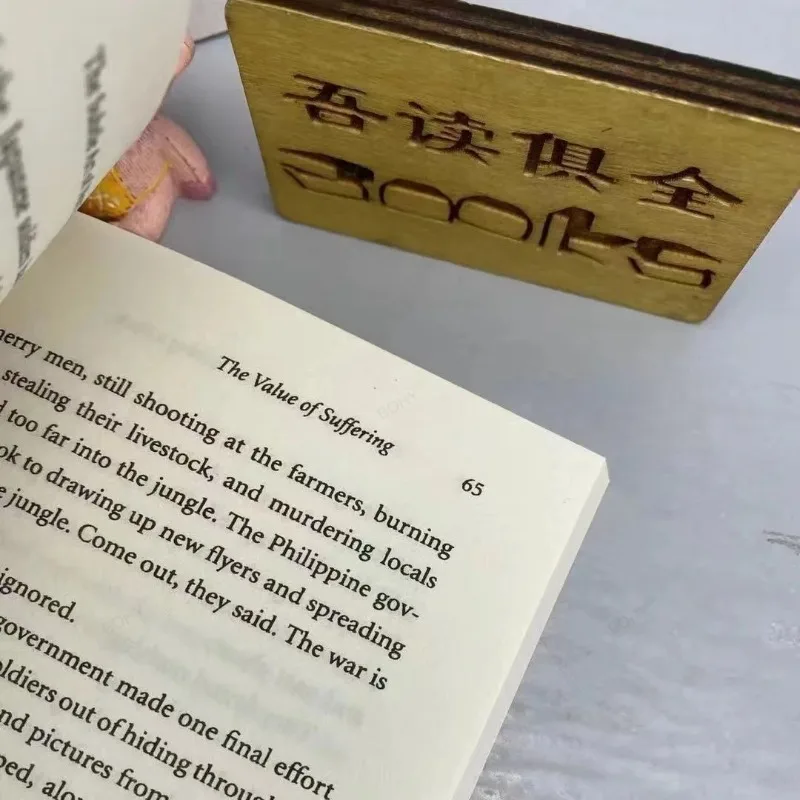 The
Japanese
吾读俱全
Books
The Value of Suffering
65
merry men, still shooting at the farmers, burning
stealing their livestock, and murdering locals
too far into the jungle. The Philippine gov-
to drawing up new flyers and spreading
jungle. Come out, they said. The war is
ignored.
government made one final effort
out of hiding through
pictures from